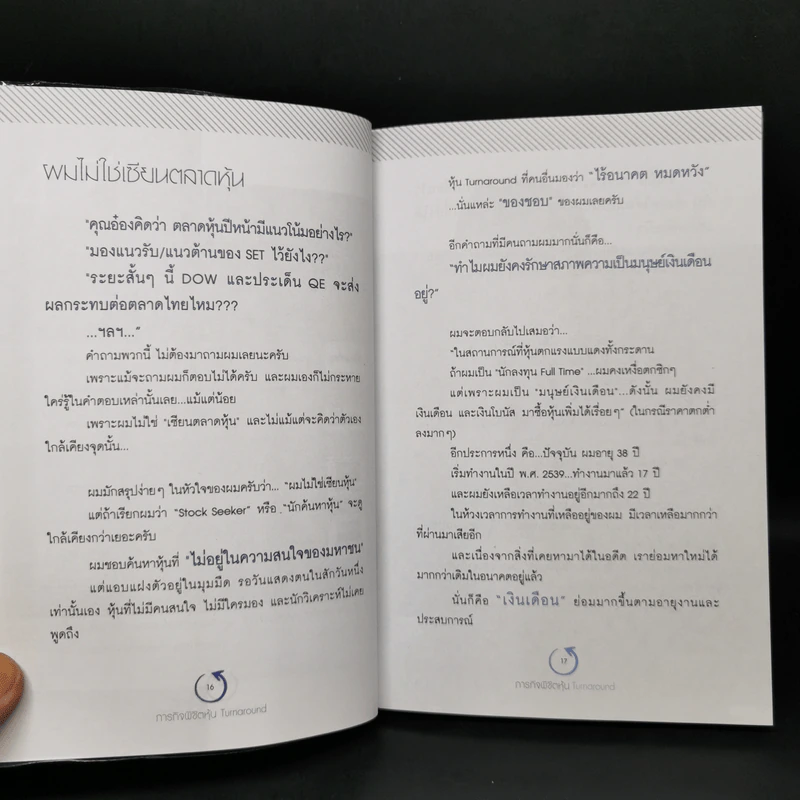 ผมไม่ใช่เซียนตลาดหุ้น
"คุณอ๋องคิดว่า ตลาดหุ้นปีหน้ามีแนวโน้มอย่างไร?"
"มองแนวรับ/แนวต้านของ SET ไว้ยังไง??"
"ระยะสั้นๆ นี้ DOW และประเด็น QE จะส่ง
ผลกระทบต่อตลาดไทยไหม???
...ฯลฯ..."
คำถามพวกนี้ ไม่ต้องมาถามผมเลยนะครับ
เพราะแม้จะถามผมก็ตอบไม่ได้ครับ และผมเองก็ไม่กระหาย
ใคร่รู้ในคำตอบเหล่านั้นเลย...แม้แต่น้อย
เพราะผมไม่ใช่ "เซียนตลาดหุ้น" และไม่แม้แต่จะคิดว่าตัวเอง
ใกล้เคียงจุดนั้น...
ผมมักสรุปง่ายๆ ในหัวใจของผมครับว่า... "ผมไม่ใช่เซียนหุ้น"
แต่ถ้าเรียกผมว่า "Stock Seeker" หรือ "นักค้นหาหุ้น" จะดู
ใกล้เคียงกว่าเยอะครับ
ผมชอบค้นหาหุ้นที่ "ไม่อยู่ในความสนใจของมหาชน"
แต่แอบแฝงตัวอยู่ในมุมมืด รอวันแสดงตนในสักวันหนึ่ง
เท่านั้นเอง หุ้นที่ไม่มีคนสนใจ ไม่มีใครมอง และนักวิเคราะห์ไม่เคย
พูดถึง
16
ภารกิจพิชิตหุ้น Turnaround
หุ้น Turnaround ที่คนอื่นมองว่า "ไร้อนาคต หมดหวัง"
...นั่นแหล่ะ "ของชอบ" ของผมเลยครับ
อีกคำถามที่มีคนถามผมมากนั่นก็คือ...
"ทำไมผมยังคงรักษาสภาพความเป็นมนุษย์เงินเดือน
อยู่?"
ผมจะตอบกลับไปเสมอว่า...
"ในสถานการณ์ที่หุ้นตกแรงแบบแดงทั้งกระดาน
ถ้าผมเป็น "นักลงทุน Full Time" ...ผมคงเหงื่อตกซิกๆ
แต่เพราะผมเป็น "มนุษย์เงินเดือน"...ดังนั้น ผมยังคงมี
เงินเดือน และเงินโบนัส มาซื้อหุ้นเพิ่มได้เรื่อยๆ" (ในกรณีราคาตกต่ำ
ลงมากๆ)
อีกประการหนึ่ง คือ...ปัจจุบัน ผมอายุ 38 ปี
เริ่มทำงานในปี พ.ศ. 2539...ทำงานมาแล้ว 17 ปี
และผมยังเหลือเวลาทำงานอยู่อีกมากถึง 22 ปี
ในห้วงเวลาการทำงานที่เหลืออยู่ของผม มีเวลาเหลือมากกว่า
ที่ผ่านมาเสียอีก
และเนื่องจากสิ่งที่เคยหามาได้ในอดีต เราย่อมหาใหม่ได้
มากกว่าเดิมในอนาคตอยู่แล้ว
นั่นก็คือ "เงินเดือน" ย่อมมากขึ้นตามอายุงานและ
ประสบการณ์
17
ภารกิจพิชิตหุ้น Turnaround